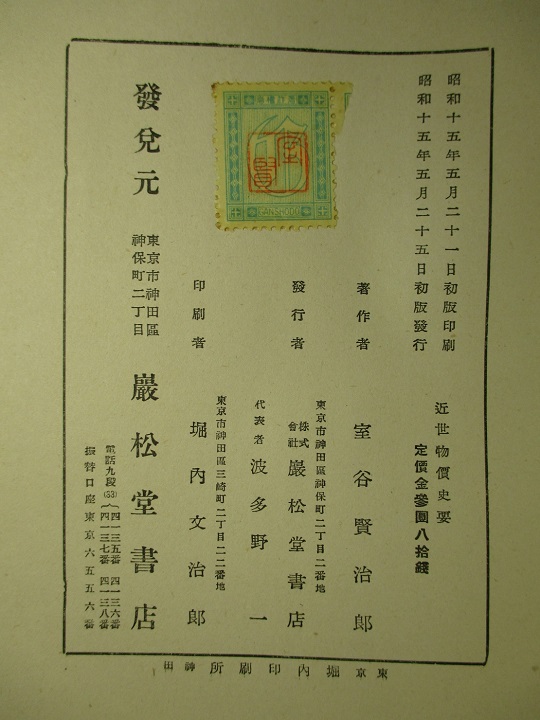 昭和十五年五月二十一日初版印刷
昭和十五年五月二十五日初版發行
近世物價史要
定價金參圓八拾錢
著作者 室谷賢治郎
東京市神田區神保町二丁目二番地
發行者 株式會社 巖松堂書店
代表者 波多野一
東京市神田區三崎町二丁目二二番地
印刷者 堀內文治郎
發兌元 東京市神田區神保町二丁目 巖松堂書店
電話九段(33) 四一三五番 四一三六番 四一三七番 四一三八番
振替口座東京六五五六番
東京 堀內印刷所 神田
GANSHODO